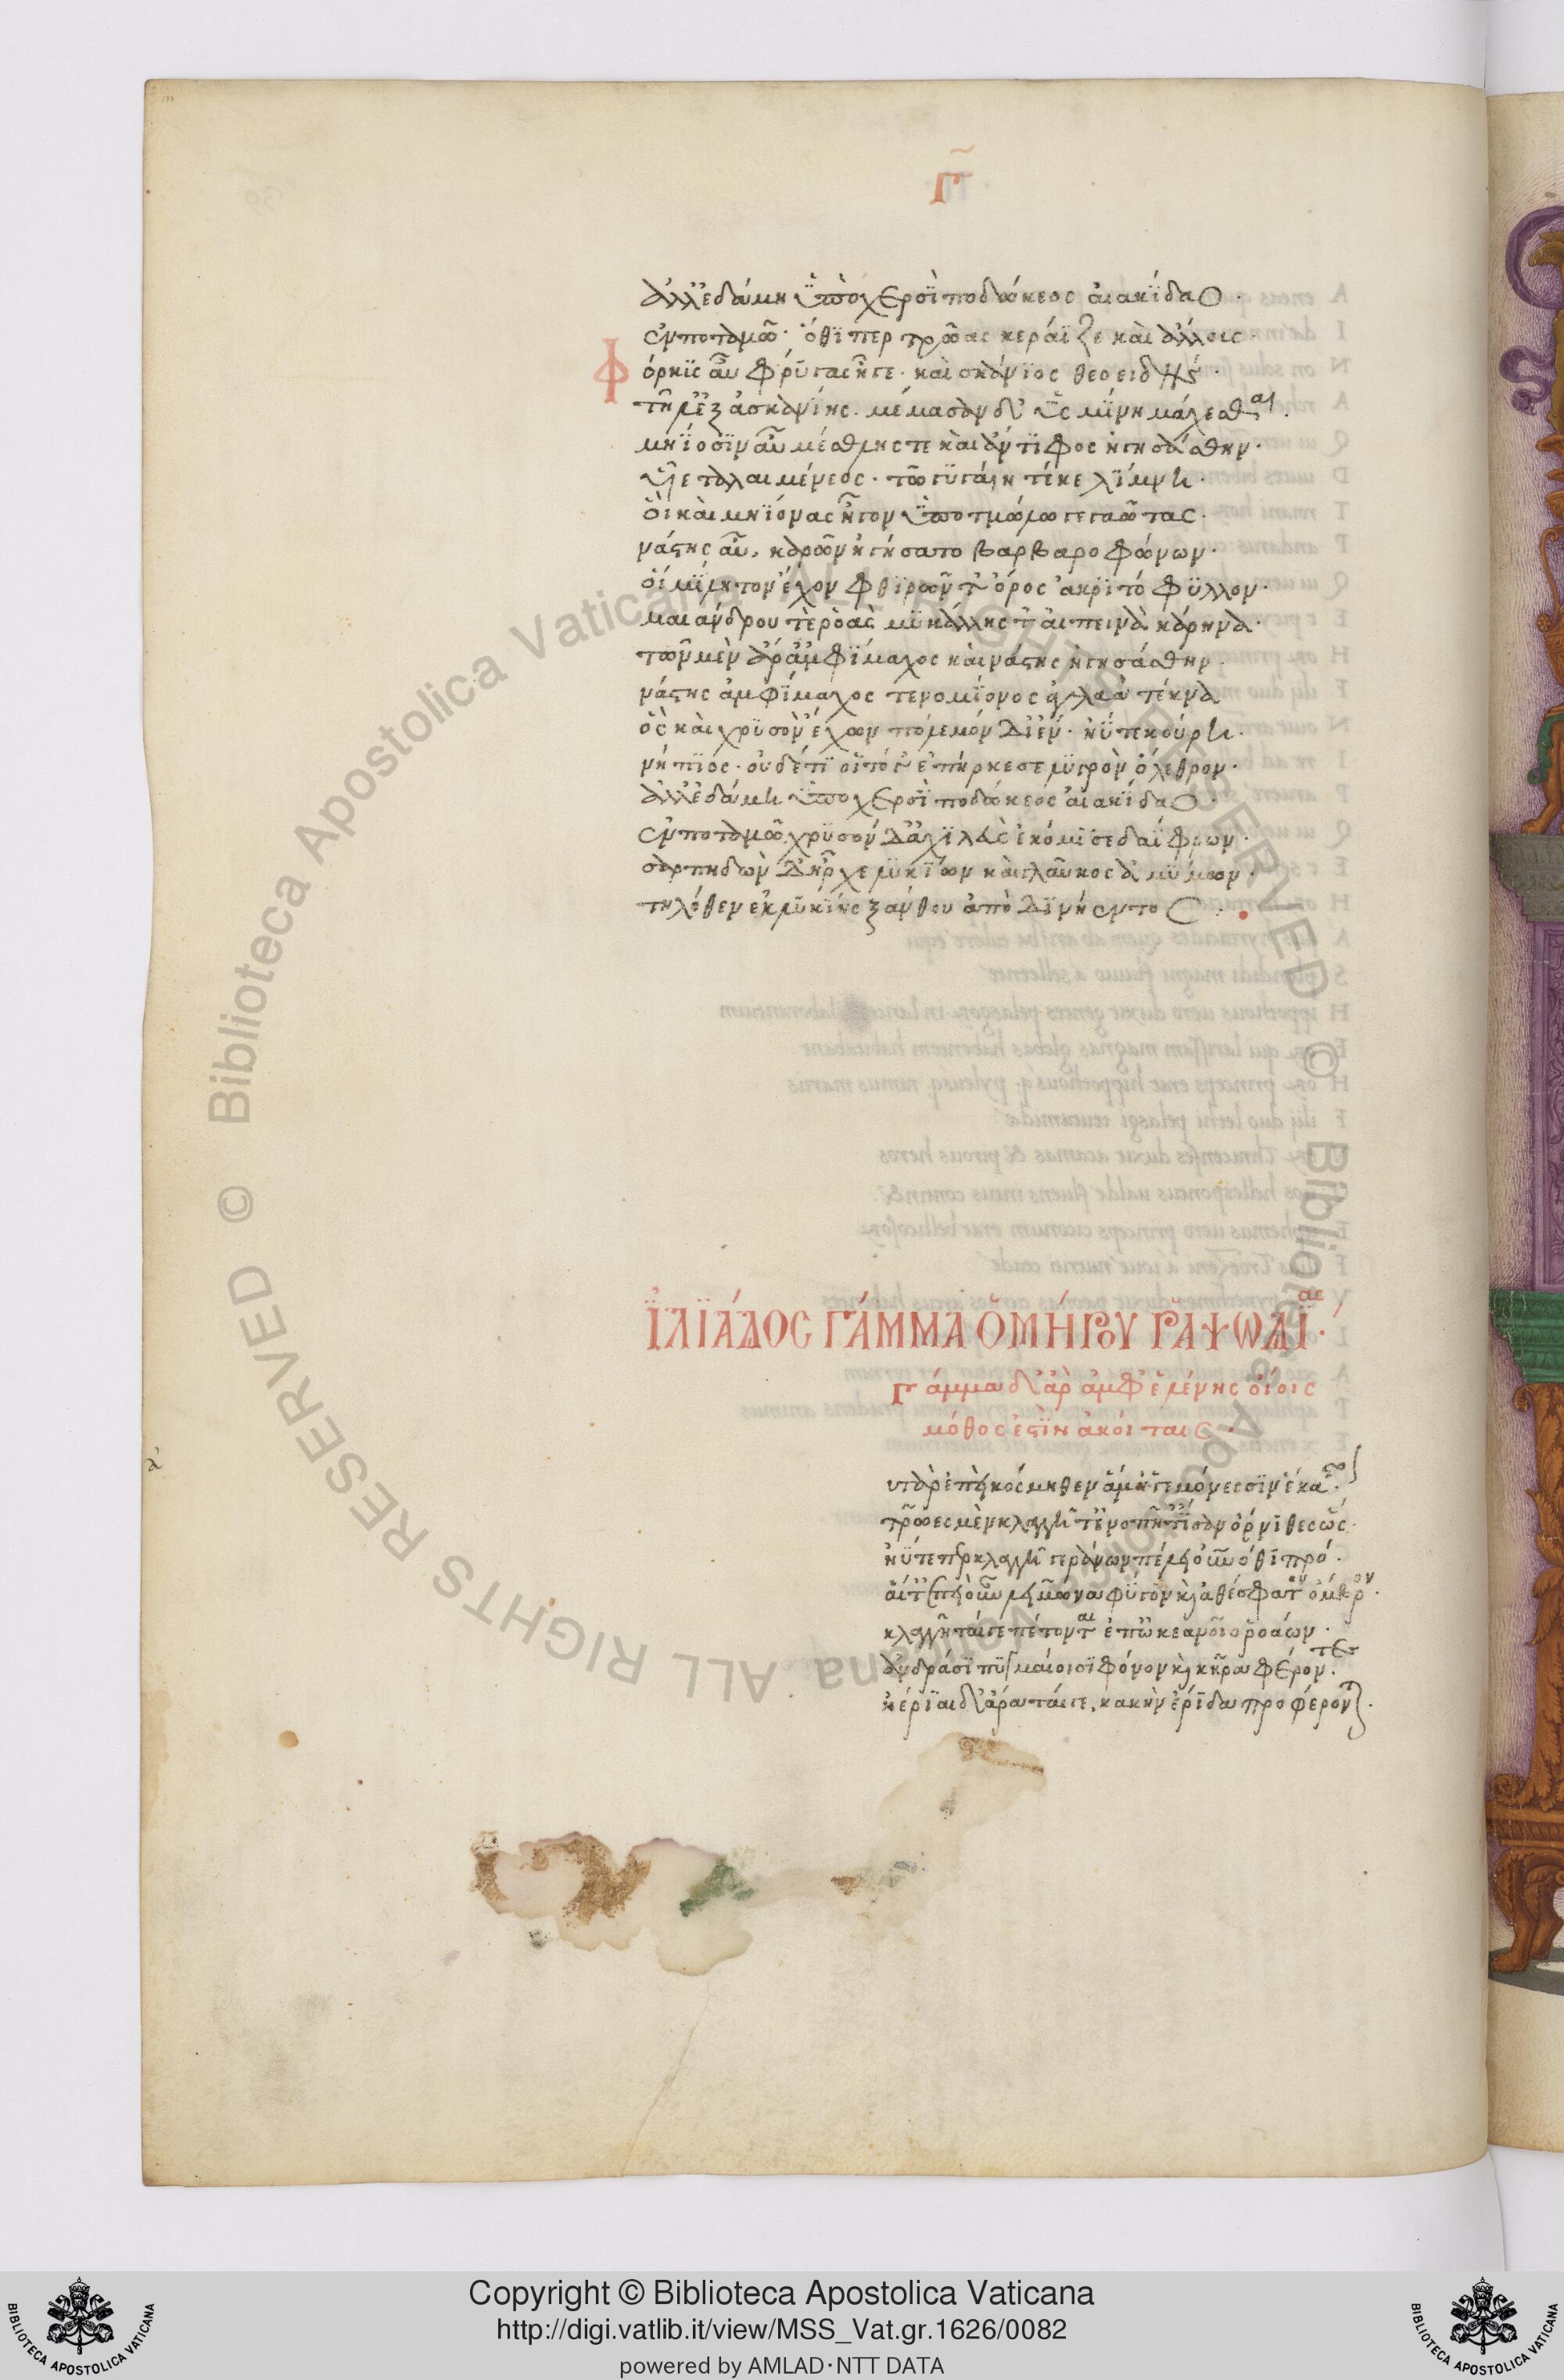 Γ
ἀλλ' ἐδάμη ὑπὸ χερσὶ ποδώκεος αἰακίδαο·
ἐν ποταμῶ· ὅθί περ τρῶας κεράϊζε καὶ ἄλλους·
Φόρκϊς αὖ φρύγας ἦγε· καὶ ἀσκάνϊος θεοειδής·
τῆλ' ἐξ ἀσκανίης· μέμασαν δ' ὑσμίνη μάχεσθαι·
μηΐοσϊν αὖ μέσθλης τε καὶ ἄντϊφος ἡγησάσθην·
υἷε ταλαιμένεος· τῶ γυγαίη τέκε λίμνη·
οἳ καὶ μηΐονας ἦγον ὑπὸ τμώλω γεγαῶτας·
νάστης αὖ, καρῶν ἡγήσατο βαρβαροφώνων·
οἳ μίλητον ἔχον φθϊρῶν τ' ὄρος ἀκρϊτόφϋλλον·
μαιάνδρου τε ῥοὰς μϋκάλης τ' αἰπεινὰ κάρηνα·
τῶν μὲν ἄρ' ἀμφίμαχος καὶ νάστης ἡγησάσθην·
νάστης ἀμφίμαχος τε νομίονος ἀγλαὰ τέκνα
ὃς καὶ χρϋσὸν ἔχων πόλεμόνδ' ἴεν· ἠΰτε κούρη·
νήπϊος· οὐδέ τϊ οἱ τό γ' ἐπήρκεσε λϋγρὸν ὄλεθρον·
ἀλλ' ἐδάμη ὑπὸ χερσὶ ποδώκεος αἰακίδαο·
ἐν ποταμῶ χρϋσὸν δ' ἀχϊλεὺς ἐκόμϊσε δαΐφρων·
σαρπηδὼν δ' ἦρχε λϋκίων καὶ γλαῦκος ἀμύμων·
τηλόθεν ἐκ λϋκίης ξάνθου ἄπο δϊνήεντος·
ἸΛΪΆΔΟΣ ΓΆΜΜΑ ὉΜΉΡΟΥ ῬΑΨΩΔΊΑΣ·
Γάμμα δ' ἄρ' ἀμφ' ἑλένης οἴοις
μόθος ἐστὶν ἀκοίταις·
α
υτὰρ ἐπεὶ κόσμηθεν ἅμ' ἡγεμόνεσσϊν ἕκαστοι·
τρῶες μὲν κλαγγῆ τ' ἐνοπῆ τ' ἴσαν ὄρνϊθες ὥς·
ἠΰτε περ κλαγγὴ γεράνων πέλει οὐρανόθϊ πρό·
αἵ τ' ἐπεὶ οὖν χειμῶνα φύγον καὶ ἀθέσφατον ὄμβρον·
κλαγγῆ ταί γε πέτονται ἐπ' ὠκεανοῖο ῥοάων·
ἀνδράσϊ πϋγμαίοισϊ φόνον καὶ κῆρα φέρουσαι·
ἠέρϊαι δ' ἄρα ταί γε, κακὴν ἔρϊδα προφέρονται·
Copyright © Biblioteca Apostolica Vaticana
http://digi.vatlib.it/view/MSS_Vat.gr.1626/0082
powered by AMLAD·NTT DATA
© Biblioteca Apostolica Vaticana ALL RIGHTS RESERVED
BIBLIOTECA APOSTOLICA VATICANA
BIBLIOTECA APOSTOLICA VATICANA